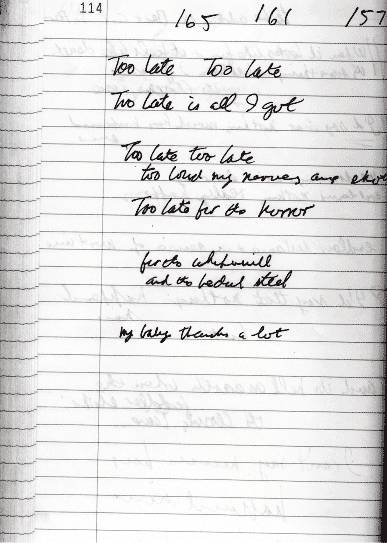 114
165 161 157
Too late Too late
Too late is all I got
Too late too late
too loud my nerves are shot
Too late for the horror
for the whipporwill
and the bedud steel
my baby thanks a lot